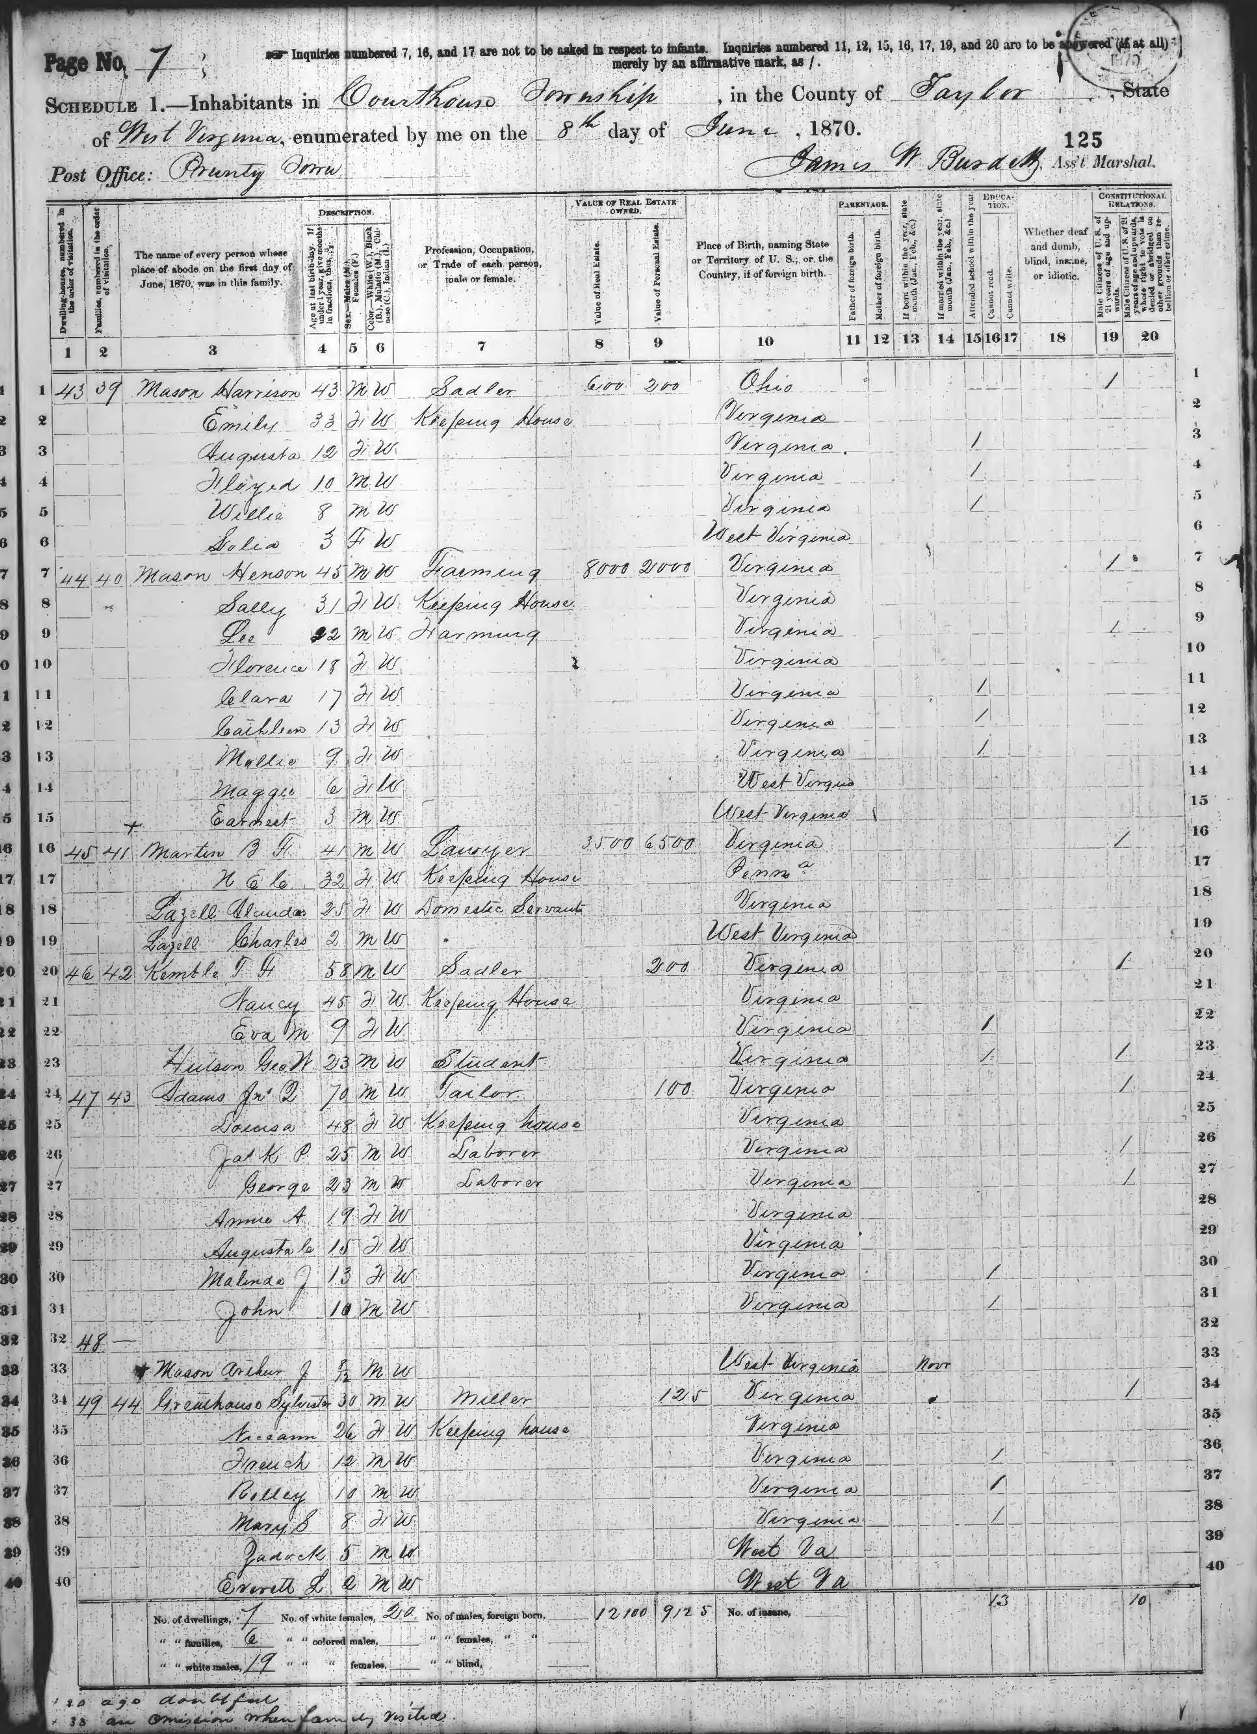 Page No. 7
Inquiries numbered 7, 16, and 17 are not to be asked in respect to infants. Inquiries numbered 11, 12, 15, 16, 17, 19, and 20 are to be answered (if at all)
merely by an affirmative mark, as /.
SCHEDULE 1.—Inhabitants in Courthouse Township, in the County of Taylor, State
of West Virginia, enumerated by me on the 8th day of June, 1870.
125
Post Office: Prunty Town
James W Burdett, Ass't Marshal.
DESCRIPTION. VALUE OF REAL ESTATE OWNED. PARENTAGE. EDUCATION. CONSTITUTIONAL RELATIONS.
Dwelling-houses, numbered in the order of visitation.
Families, numbered in the order of visitation.
The name of every person whose place of abode on the first day of June, 1870, was in this family.
Age at last birth-day. If under 1 year, give months in fractions, thus, 3/12
Sex.—Males (M.), Females (F.)
Color.—White (W.), Black (B.), Mulatto (M.), Chinese (C.), Indian (I.)
Profession, Occupation, or Trade of each person, male or female.
Value of Real Estate.
Value of Personal Estate.
Place of Birth, naming State or Territory of U. S.; or the Country, if of foreign birth.
Father of foreign birth.
Mother of foreign birth.
If born within the year, state month (Jan., Feb., &c.)
If married within the year, state month (Jan., Feb., &c.)
Attended school within the year.
Cannot read.
Cannot write.
Whether deaf and dumb, blind, insane, or idiotic.
Male Citizens of U. S. of 21 years of age and upwards.
Male Citizens of U. S. of 21 years of age and upwards, whose right to vote is denied or abridged on other grounds than rebellion or other crime.
1 2 3 4 5 6 7 8 9 10 11 12 13 14 15 16 17 18 19 20
1 43 39 Mason Harrison 43 M W Sadler 600 200 Ohio / 1
2 Emily 33 F W Keeping House Virginia 2
3 Augusta 12 F W Virginia / 3
4 Floyed 10 M W Virginia / 4
5 Willie 8 M W Virginia / 5
6 3 F W West Virginia 6
7 44 40 Mason Henson 45 M W Farming 8000 2000 Virginia / 7
8 Sally 31 F W Keeping House Virginia 8
9 Lee 22 M W Farming Virginia / 9
10 Florence 18 F W Virginia 10
11 Clara 17 F W Virginia / 11
12 Cathleen 13 F W Virginia / 12
13 Mollie 9 F W Virginia / 13
14 Maggie 6 F W West Virginia 14
15 Earnest 3 M W West Virginia 15
16 45 41 Martin B F 41 M W Lawyer 3500 6500 Virginia / 16
17 N E C 32 F W Keeping House Penna 17
18 Lazell 25 F W Domestic Servant Virginia 18
19 Lazell Charles 2 M W West Virginia 19
20 46 42 Kemble T F 58 M W Sadler 200 Virginia / 20
21 Nancy 45 F W Keeping House Virginia 21
22 Eva M 9 F W Virginia / 22
23 Hutson Geo W 23 M W Student Virginia / / 23
24 47 43 Adams Jno Q 70 M W Tailor 100 Virginia / 24
25 Louisa 48 F W Keeping house Virginia 25
26 Jack P 25 M W Laborer Virginia / 26
27 George 23 M W Laborer Virginia / 27
28 Annie A 19 F W Virginia 28
29 Augusta C 15 F W Virginia 29
30 Malinda J 13 F W Virginia / 30
31 John 10 M W Virginia / 31
32 48 — 32
33 Mason Arthur J 8/12 M W West Virginia Novr 33
34 49 44 Greathouse Sylvester 30 M W Miller 125 Virginia / 34
35 26 F W Keeping house Virginia 35
36 French 12 M W Virginia / 36
37 Rolley 10 M W Virginia / 37
38 Mary S 8 F W Virginia / 38
39 Zadock 5 M W West Va 39
40 Everett L 2 M W West Va 40
No. of dwellings, 7 No. of white females, 20 No. of males, foreign born, 12100 9125 No. of insane, 13 10
" " families, 6 " " colored males, " " females, " "
" " white males, 19 " " " females, " " blind,
age doubtful
33 an omission when family visited.